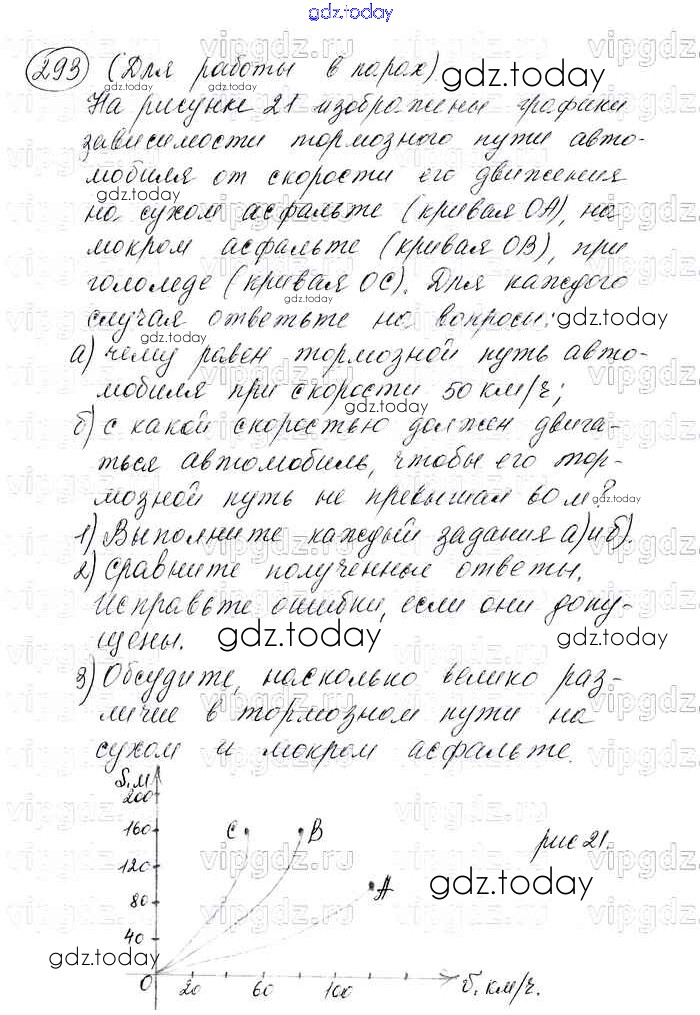 gdz.today
293 (Для работы в парах) gdz.today
На рисунке 21 изображены графики
gdz.today
зависимости тормозного пути авто-
мобиля от скорости его движения
gdz.today
на сухом асфальте (кривая ОА), на
мокром асфальте (кривая ОВ), при
гололеде (кривая ОС). Для каждого
gdz.today
случая ответьте на вопросы: gdz.today
а) чему равен тормозной путь авто-
мобиля при скорости 50 км/ч;
gdz.today
б) с какой скоростью должен двига-
ться автомобиль, чтобы его тор-
мозной путь не превышал 60 м?
gdz.today
1) Выполните каждый задания а) и б).
2) Сравните полученные ответы.
Исправьте ошибки, если они допу-
щены. gdz.today gdz.today
3) Обсудите, насколько велико раз-
личие в тормозном пути на
сухом и мокром асфальте.
S, м
200
160 С В рис 21.
120
80 А gdz.today
40
gdz.today
0 20 60 100 v, км/ч.
vipgdz.ru